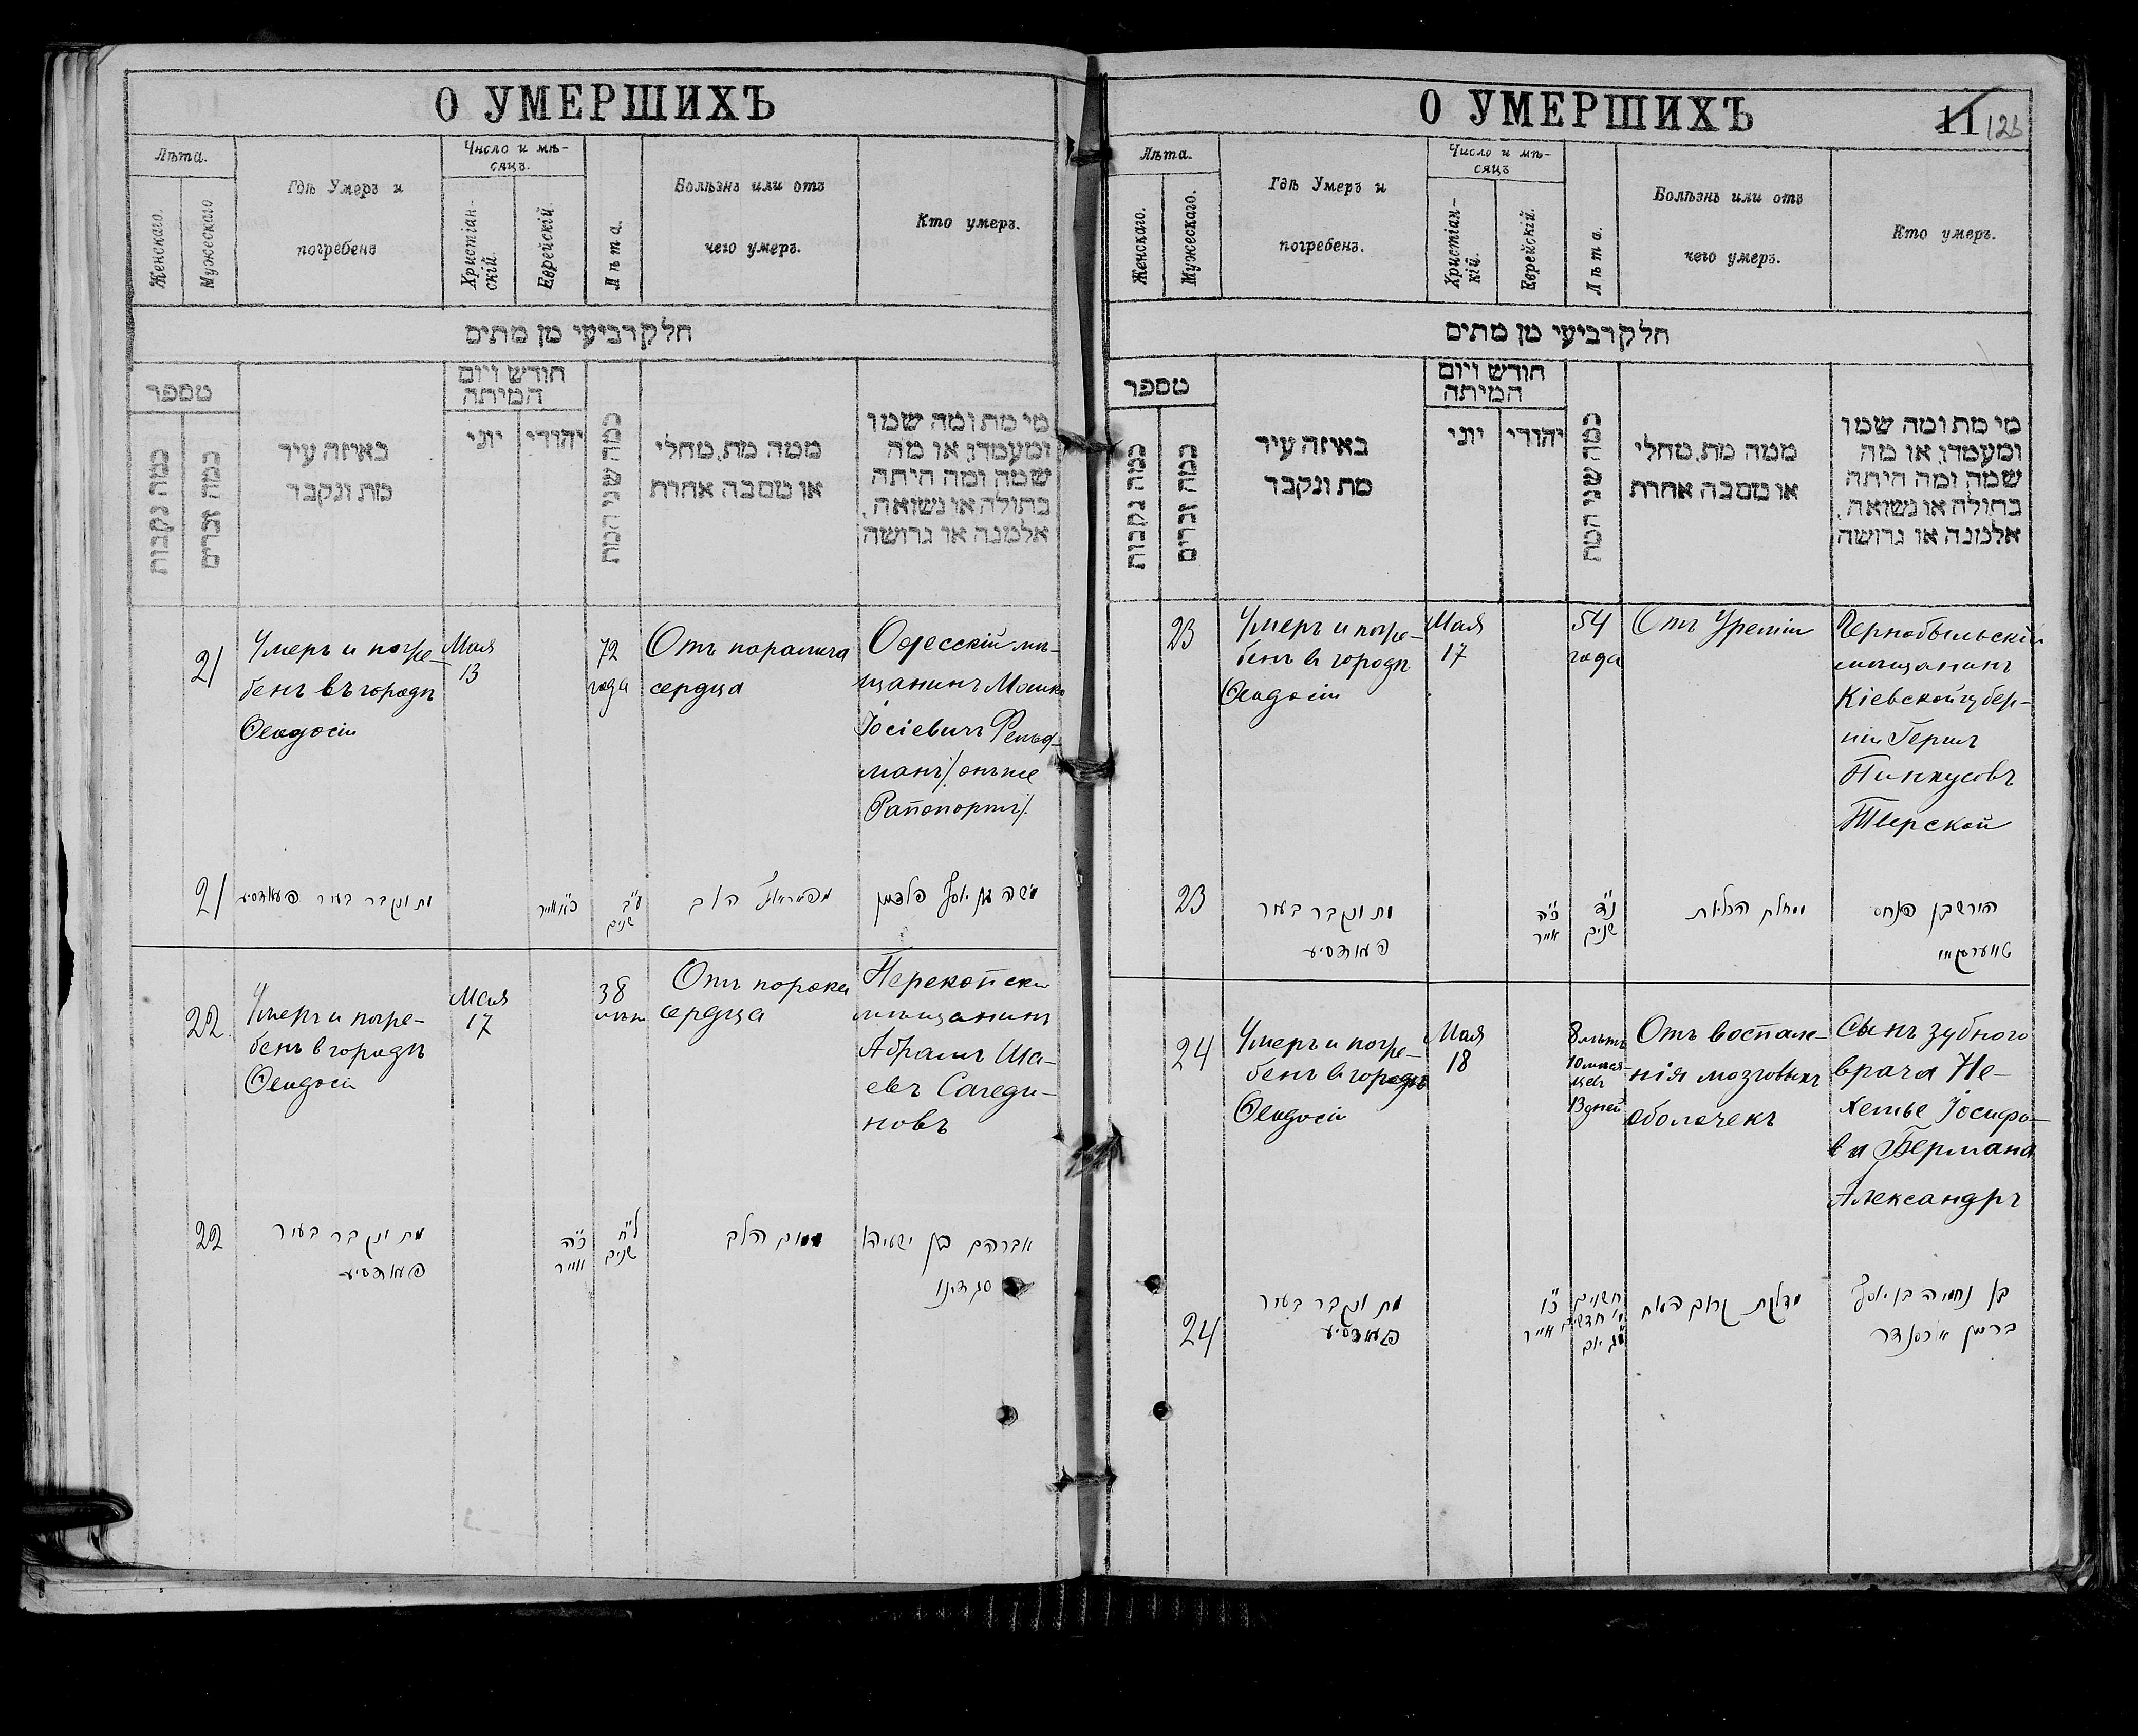 О УМЕРШИХЪ
Лѣта.
Женскаго.
Мужескаго
Гдѣ Умеръ и
погребенъ
Число и мѣ-
сяцъ.
Христіан-
скій.
Еврейскій.
Лѣта.
Болѣзнь или отъ
чего умеръ.
Кто умеръ.
חלק רביעי מן מתים
מספר
כמה נקבות
כמה זכרים
באיזה עיר
מת ונקבר
חודש ויום
המיתה
יוני
יהודי
כמה שני המת
ממה מת, מחלי
או מסבה אחרת
מי מת ומה שמו
ומעמדו, או מה
שמה ומה היתה
בתולה או נשואה,
אלמנה או גרושה
21
Умеръ и погре-
бенъ въ городѣ
Ѳеодосіи
Мая
13
72
года
Отъ паралича
сердца
Одесскій мѣ-
щанинъ Мошко
Іосіевичъ Фельд-
манъ /онъ же
Рапопортъ/.
21
מת ונקבר בעיר פעאדסיע
כ"א אייר
ע"ב
שנים
הלב
משה בן יוסף פלדמן
22.
Умеръ и погре-
бенъ в городѣ
Ѳеодосіи
Мая
17
38
лѣтъ
Отъ порока
сердца
Перекопскій
мѣщанинъ
Абрамъ Ша-
евъ Сагеди-
новъ
22
מת ונקבר בעיר
פעאדסיע
כ"ה
אייר
ל"ח
שנים
הלב
אברהם בן ישעיהו
סגדינו
О УМЕРШИХЪ
11 123
Лѣта.
Женскаго.
Мужескаго.
Гдѣ Умеръ и
погребенъ.
Число и мѣ-
сяцъ
Христіан-
кій.
Еврейскій.
Лѣта.
Болѣзнь или отъ
чего умеръ.
Кто умеръ.
חלק רביעי מן מתים
מספר
כמה נקבות
כמה זכרים
באיזה עיר
מת ונקבר
חודש ויום
המיתה
יוני
יהודי
כמה שני המת
ממה מת, מחלי
או מסבה אחרת
מי מת ומה שמו
ומעמדו, או מה
שמה ומה היתה
בתולה או נשואה,
אלמנה או גרושה
23
Умеръ и погре-
бенъ в городѣ
Ѳеодосіи
Мая
17
54
года
Отъ Уреміи
Чернобыльскій
мѣщанинъ
Кіевской губер-
ніи Гершъ
Пинкусовъ
Тверской
23
מת ונקבר בעיר
פעאדסיע
כ"ה
אייר
נ"ד
שנים
מחלת הכליות
הירש בן פנחס
טווערסקיי
24
Умеръ и погре-
бенъ в городѣ
Ѳеодосіи
Мая
18
8 лѣтъ
10 мѣся-
цев
13 дней
Отъ воспале-
нія мозговыхъ
оболочекъ
Сынъ зубного
врача Не-
хемье Іосифо-
ва Бермана
Александръ
24
מת ונקבר בעיר
פעאדסיע
כ"ו
אייר
ח שנים
י' חדשים
י"ג יום
מדלקת קרום המוח
בן נחמיה בן יוסף
ברמן